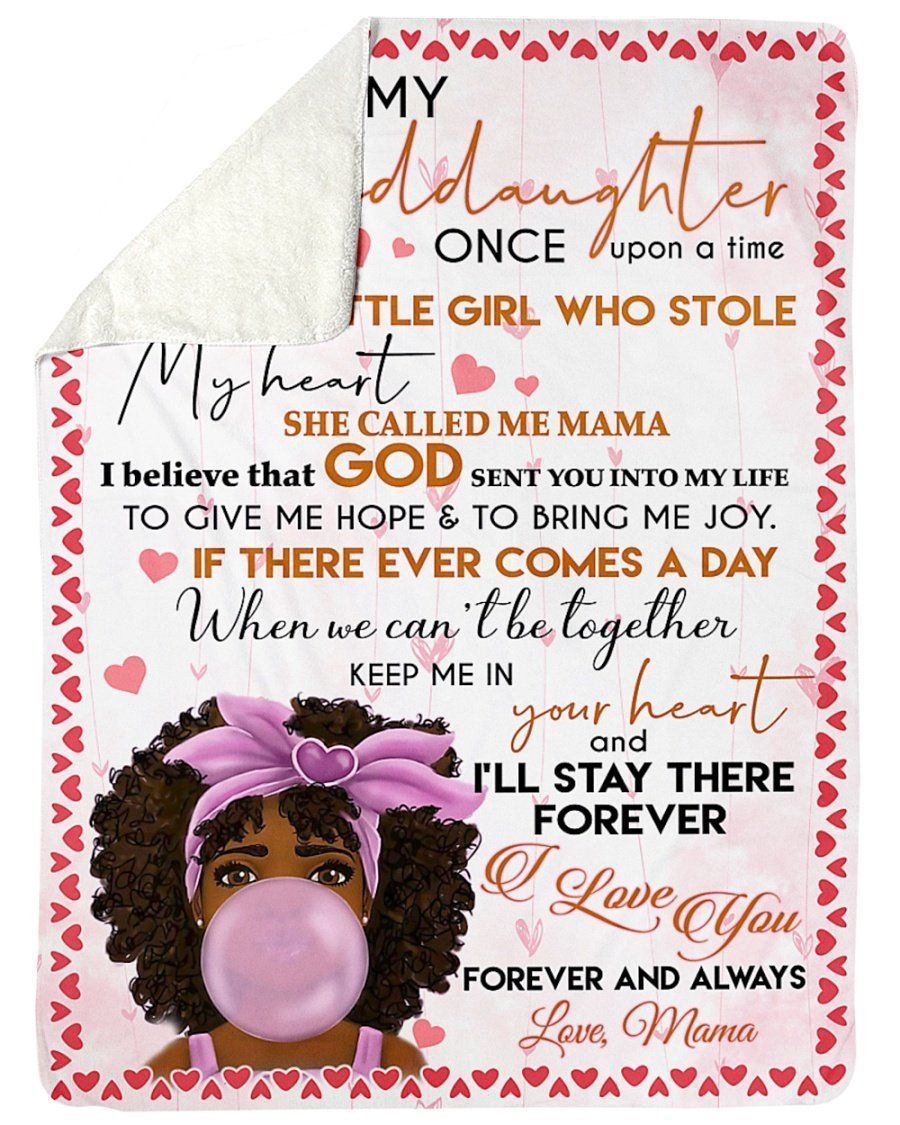 MY
ddaughter
ONCE upon a time
TTLE GIRL WHO STOLE
My heart
SHE CALLED ME MAMA
I believe that GOD SENT YOU INTO MY LIFE
TO GIVE ME HOPE & TO BRING ME JOY.
IF THERE EVER COMES A DAY
When we can't be together
KEEP ME IN
your heart
and
I'LL STAY THERE
FOREVER
I Love You
FOREVER AND ALWAYS
Love, Mama